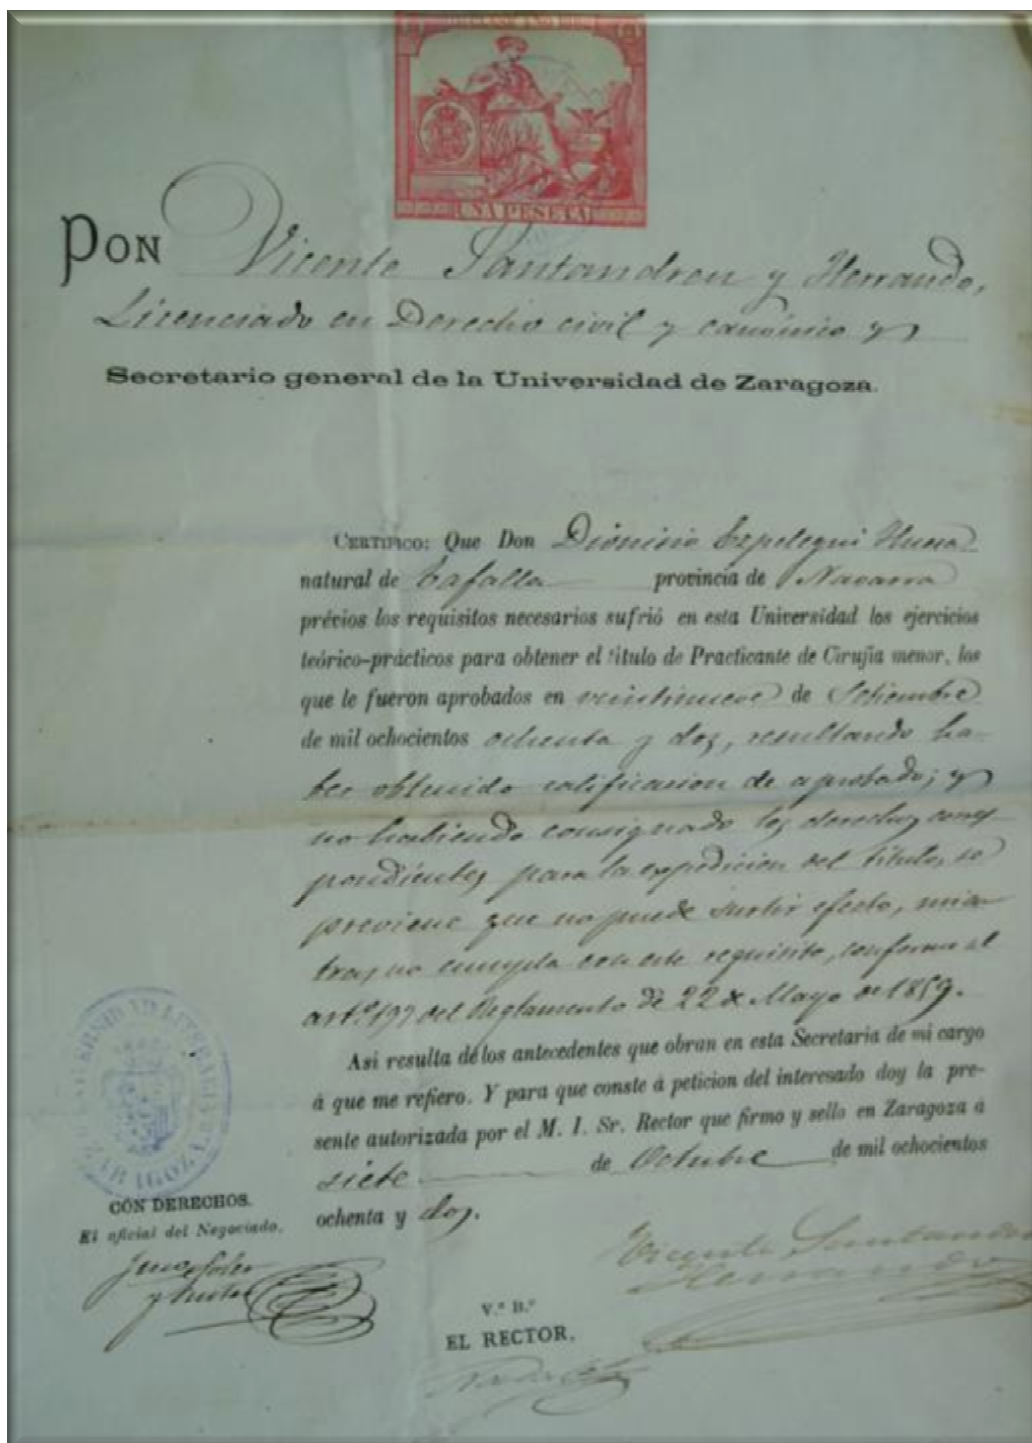 UNA PESETA
DON Vicente Santandreu y Herrando,
Licenciado en Derecho civil y canónico y
Secretario general de la Universidad de Zaragoza.
CERTIFICO: Que Don Dionisio Ezpelegui
natural de Tafalla provincia de Navarra
prévios los requisitos necesarios sufrió en esta Universidad los ejercicios
teórico-prácticos para obtener el título de Practicante de Cirujía menor, los
que le fueron aprobados en veintinueve de Setiembre
de mil ochocientos ochenta y dos, resultando ha-
ber obtenido calificacion de aprobado; y
no habiendo consignado los derechos corres
pondientes para la expedicion del título, se
previene que no puede surtir efecto, mien
tras no cumpla con este requisito, conforme al
art.º 197 del Reglamento de 22 de Mayo de 1859.
Asi resulta de los antecedentes que obran en esta Secretaria de mi cargo
á que me refiero. Y para que conste á peticion del interesado doy la pre-
sente autorizada por el M. I. Sr. Rector que firmo y sello en Zaragoza á
siete de Octubre de mil ochocientos
ochenta y dos.
UNIVERSIDAD LITERARIA
ZARAGOZA
CON DERECHOS.
El oficial del Negociado,
Vicente Santandreu
Herrando
V.º B.º
EL RECTOR,